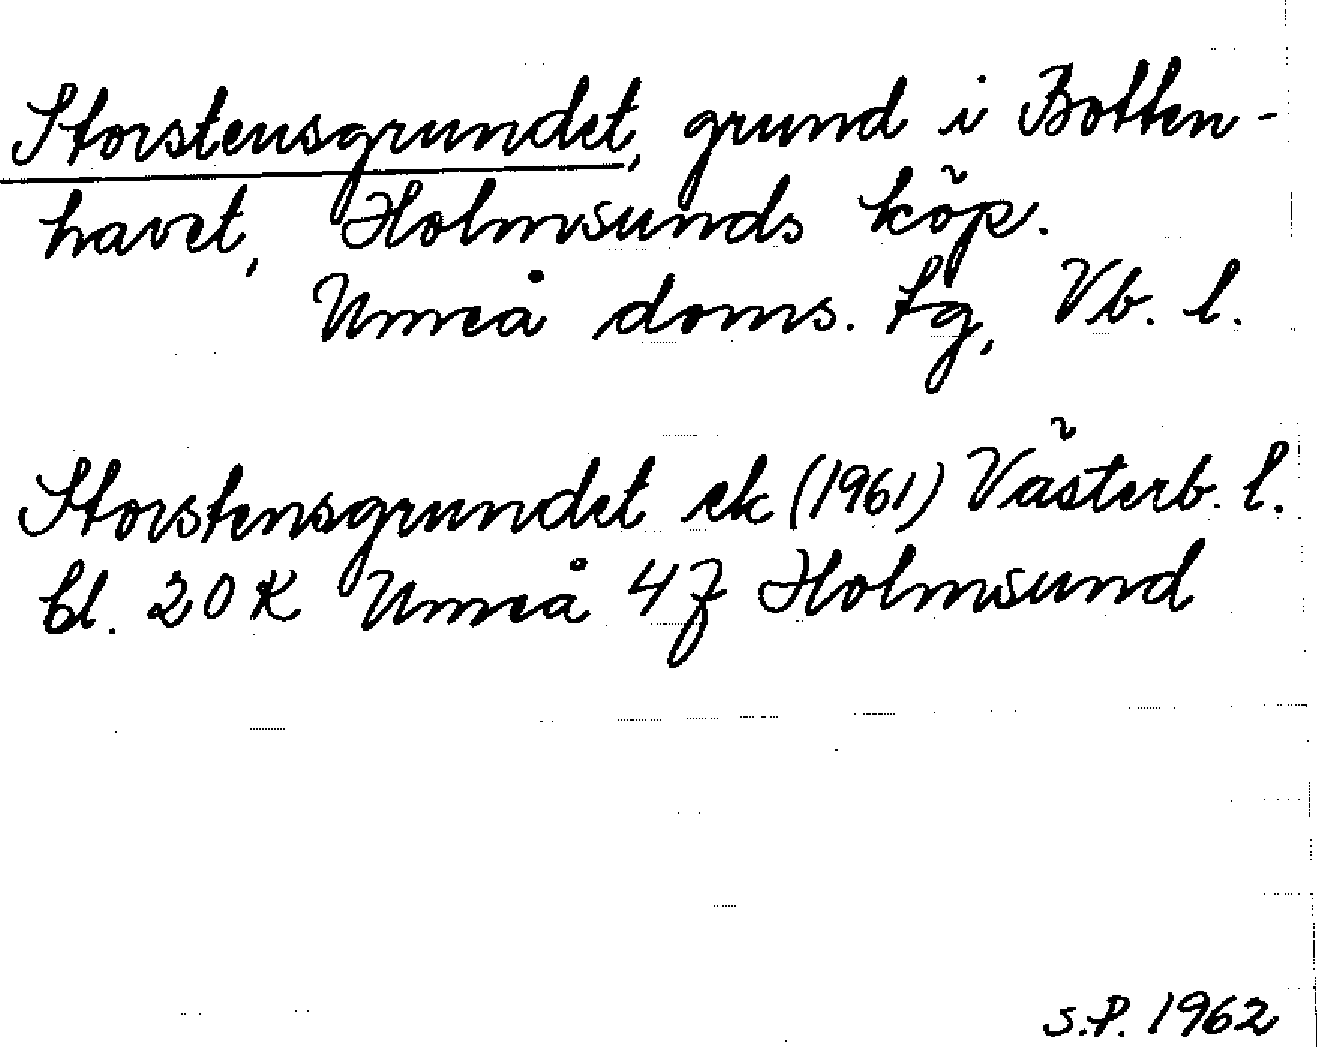 Storstensgrundet, grund i Botten-
havet, Holmsunds köp.
Umeå doms. tg, Vb. l.
Storstensgrundet ek (1961) Västerb. l.
bl. 20 K Umeå 4f Holmsund
S.P. 1962